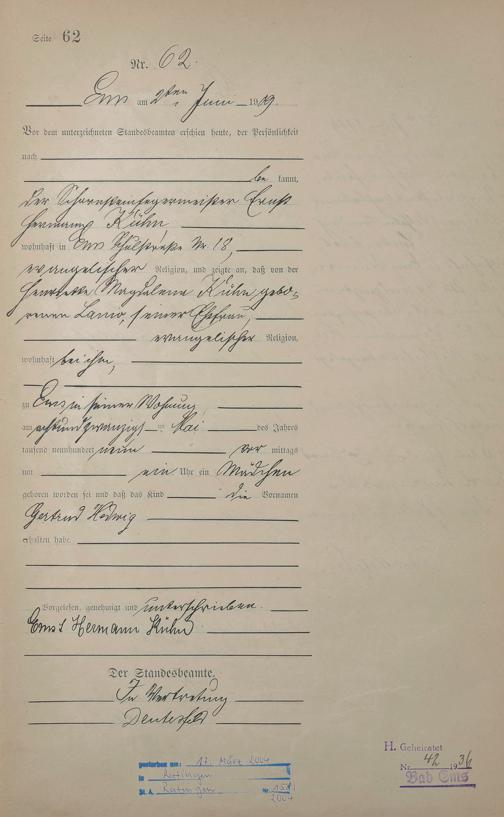 Seite 62
Nr. 62.
Ems am 2ten Juni 1909.
Vor dem unterzeichneten Standesbeamten erschien heute, der Persönlichkeit
nach
be kannt,
der Schornsteinfegermeister Ernst
Hermann Kühn
wohnhaft in Ems Schulstraße Nr 18,
evangelischer Religion, und zeigte an, daß von der
Henriette Magdalena Kühn gebo-
renen Lamo, seiner Ehefrau,
evangelischer Religion,
wohnhaft bei ihm,
zu Ems in seiner Wohnung
am achtundzwanzigsten Mai des Jahres
tausend neunhundert neun vor mittags
um ein Uhr ein Mädchen
geboren worden sei und daß das Kind die Vornamen
Gertrud Hedwig
erhalten habe.
Vorgelesen, genehmigt und unterschrieben.
Ernst Hermann Kühn
Der Standesbeamte.
In Vertretung
gestorben am: 17. März 2004
in Ratingen
St. A. Ratingen Nr. 2004
H. Geheiratet
Nr. 42 1936
Bad Ems